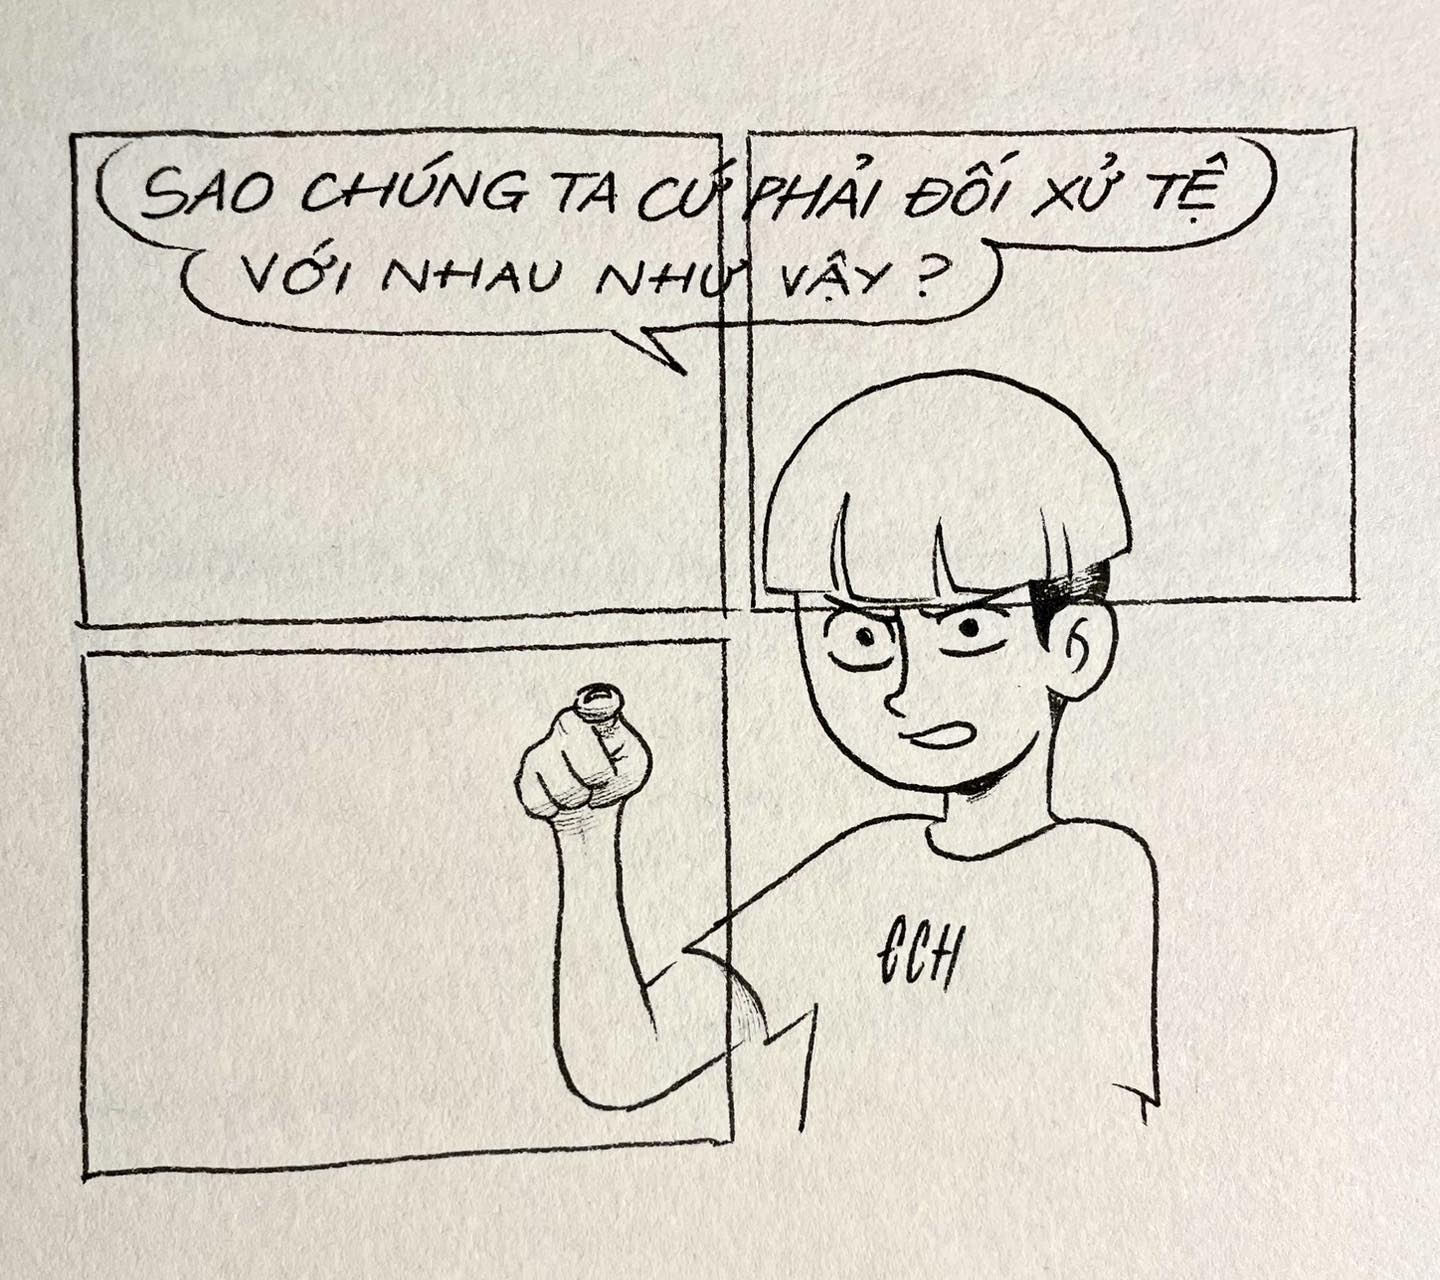 SAO CHÚNG TA CỨ PHẢI ĐỐI XỬ TỆ
VỚI NHAU NHƯ VẬY?
CCH